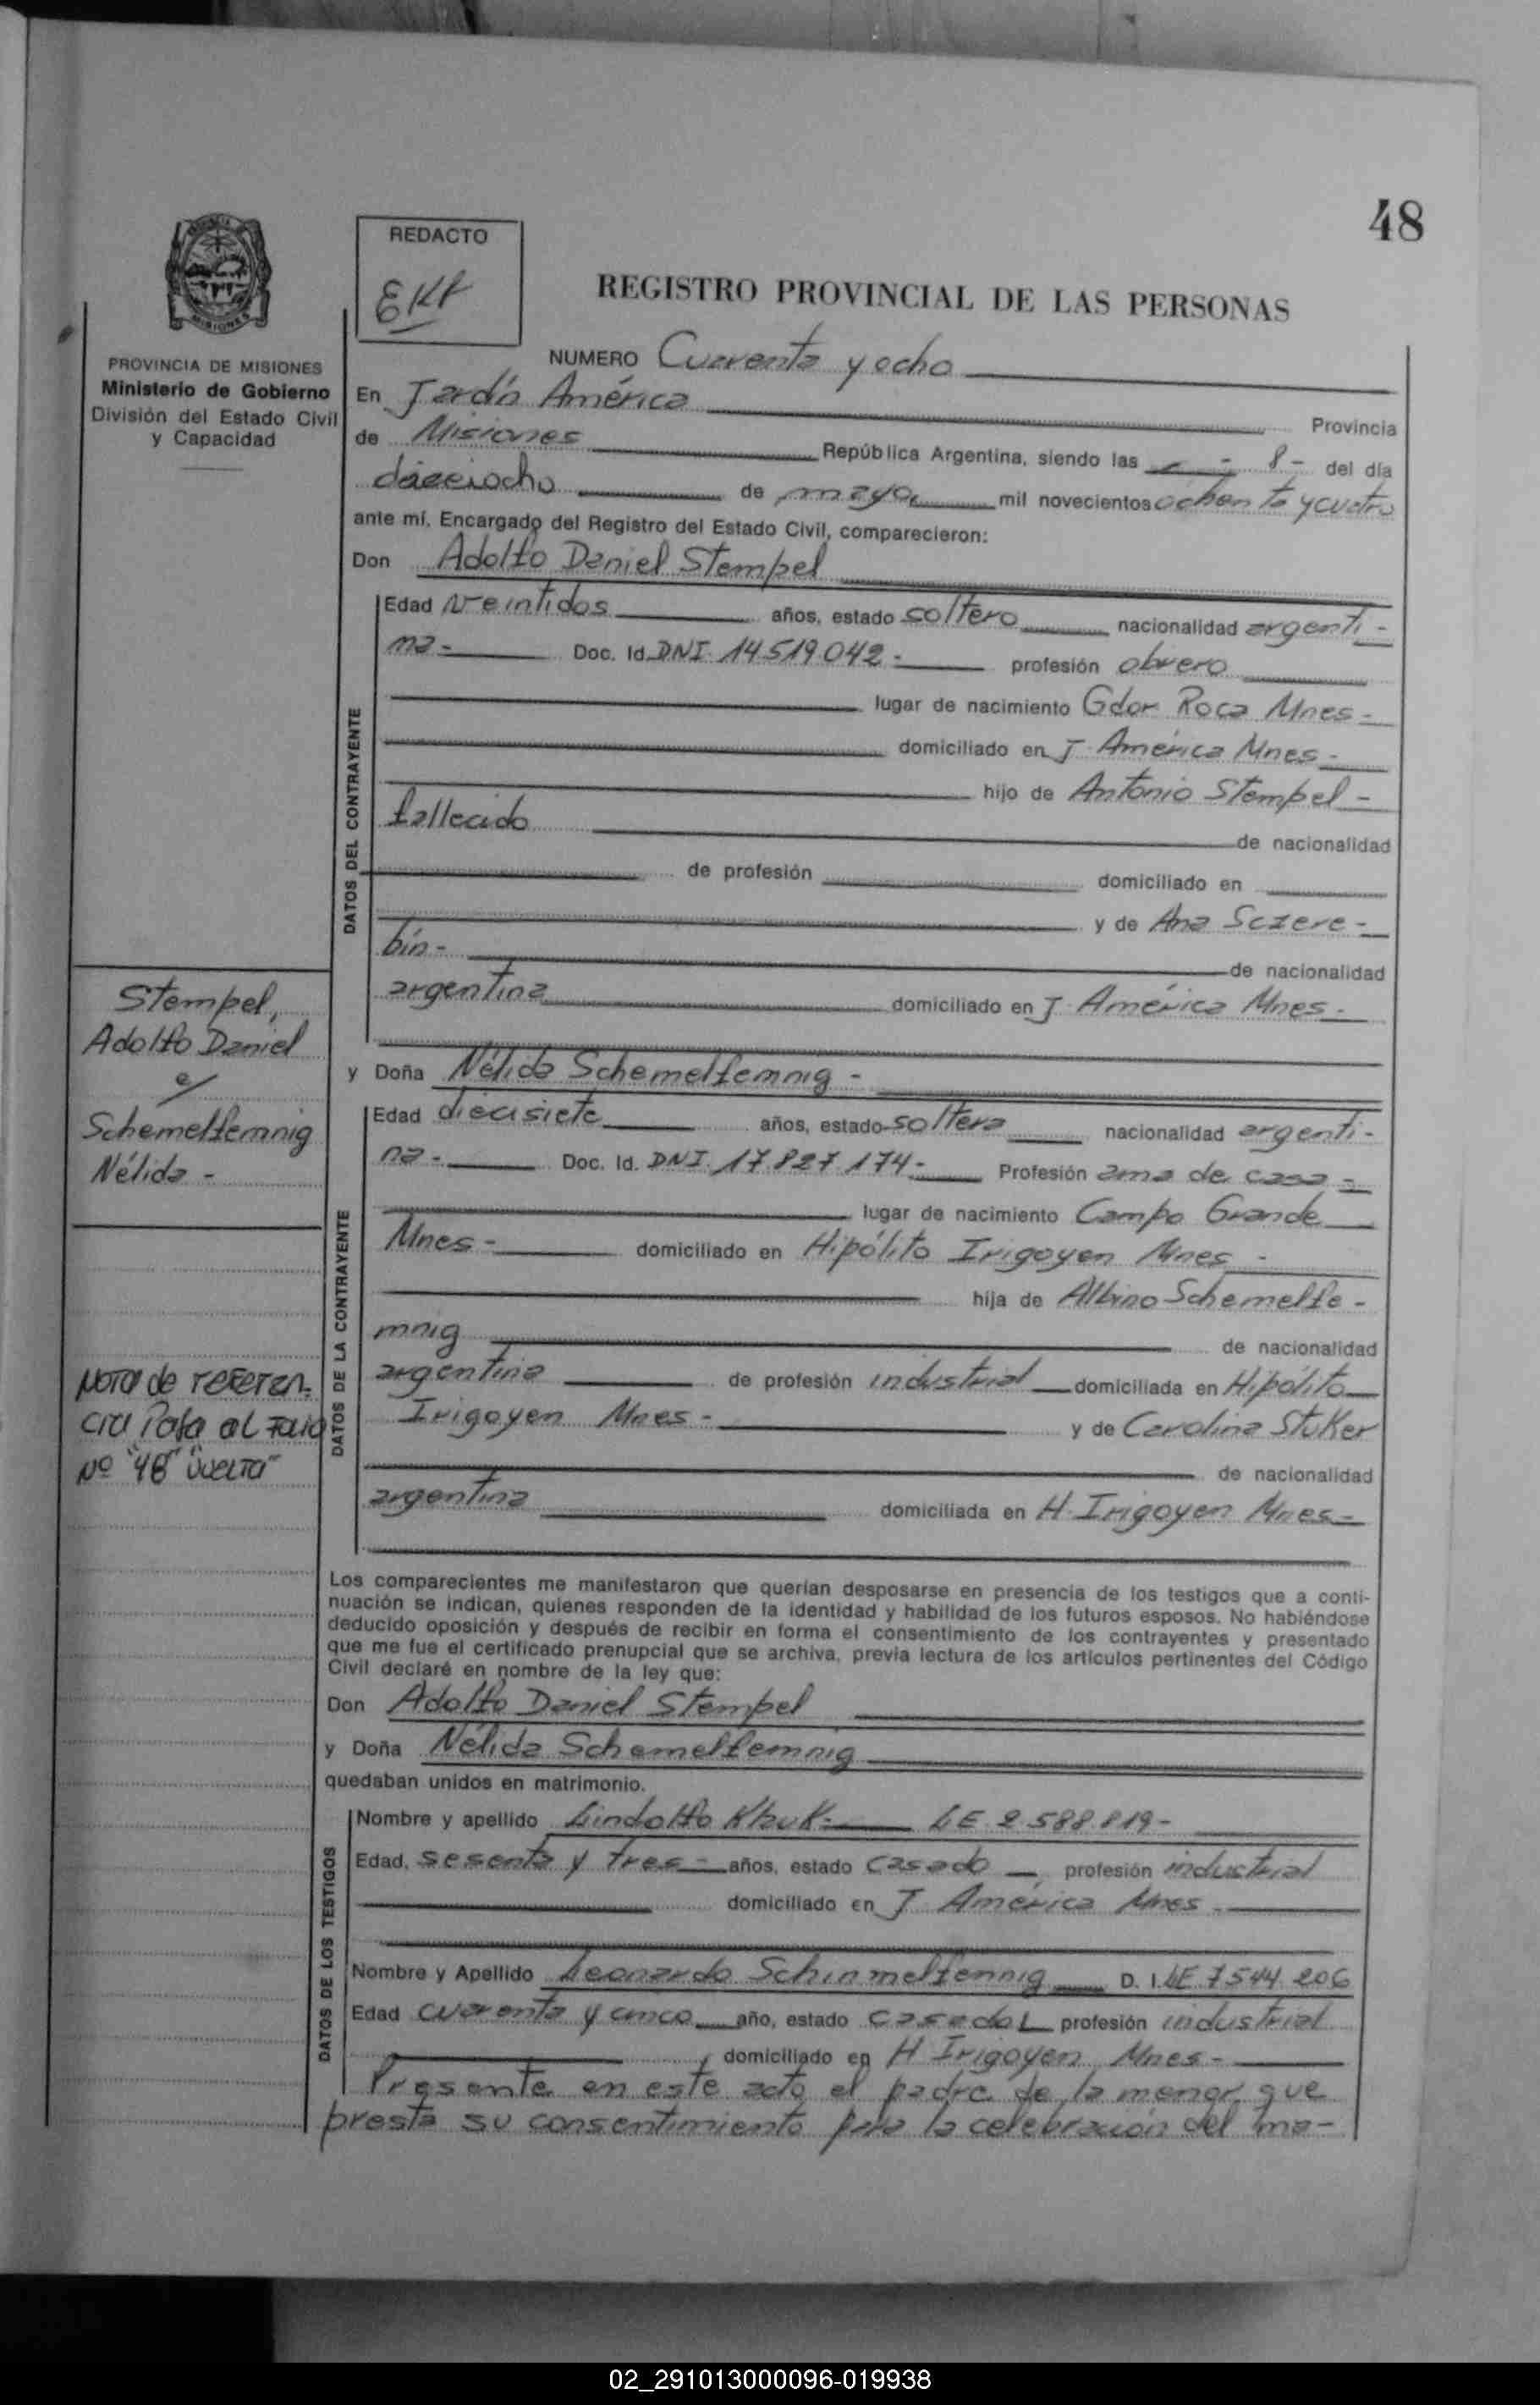 48
REDACTO
EKF
REGISTRO PROVINCIAL DE LAS PERSONAS
MISIONES
PROVINCIA DE MISIONES
Ministerio de Gobierno
División del Estado Civil
y Capacidad
NUMERO Cuarenta y ocho
En Jardín América Provincia
de Misiones República Argentina, siendo las - 8 - del día
dieciocho de mayo mil novecientos ochenta y cuatro
ante mí, Encargado del Registro del Estado Civil, comparecieron:
Don Adolfo Daniel Stempel
Edad veintidos años, estado soltero nacionalidad argenti-
na- Doc. Id. DNI. 14.519.042- profesión obrero
lugar de nacimiento Gdor Roca Mnes-
domiciliado en J. América Mnes-
hijo de Antonio Stempel-
fallecido de nacionalidad
de profesión domiciliado en
y de Ana Sczere-
bin- de nacionalidad
argentina domiciliado en J. América Mnes-
DATOS DEL CONTRAYENTE
Stempel,
Adolfo Daniel
c/
Schemelfemnig
Nélida-
y Doña Nélida Schemelfemnig-
Edad diecisiete años, estado soltera nacionalidad argenti-
na- Doc. Id. DNI. 17.827.174- Profesión ama de casa-
lugar de nacimiento Campo Grande
Mnes- domiciliado en Hipólito Irigoyen Mnes-
hija de Albino Schemelfe-
mnig de nacionalidad
argentina de profesión industrial domiciliada en Hipólito
Irigoyen Mnes- y de Carolina Stuker
de nacionalidad
argentina domiciliada en H. Irigoyen Mnes-
DATOS DE LA CONTRAYENTE
Nota de referen-
cia Pasa al Folio
Nº "48" Vuelta"
Los comparecientes me manifestaron que querían desposarse en presencia de los testigos que a conti-
nuación se indican, quienes responden de la identidad y habilidad de los futuros esposos. No habiéndose
deducido oposición y después de recibir en forma el consentimiento de los contrayentes y presentado
que me fue el certificado prenupcial que se archiva, previa lectura de los artículos pertinentes del Código
Civil declaré en nombre de la ley que:
Don Adolfo Daniel Stempel
y Doña Nélida Schemelfemnig
quedaban unidos en matrimonio.
Nombre y apellido Lindolfo Khuk- LE 2.588.819-
Edad, sesenta y tres- años, estado casado profesión industrial
domiciliado en J. América Mnes-
Nombre y Apellido Leonardo Schinmelfennig D. I. LE 7.544.206
Edad cuarenta y cinco año, estado casado profesión industrial
domiciliado en H Irigoyen Mnes-
DATOS DE LOS TESTIGOS
Presente en este acto el padre de la menor que
presta su consentimiento para la celebración del ma-
02_291013000096-019938